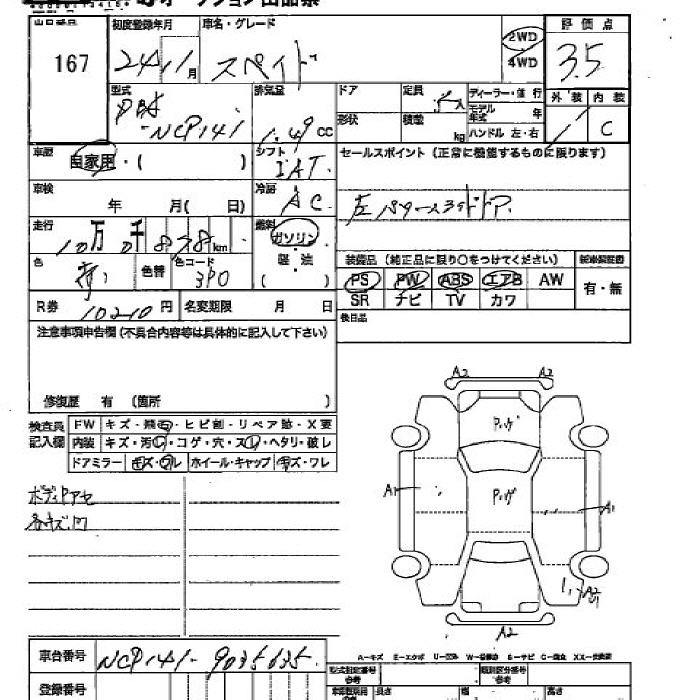 オークション出品票
出品番号 初度登録年月 車名・グレード 評価点
167 24 11月 スペイド 2WD 4WD 3.5
型式 排気量 ドア 定員 ディーラー・並行 外装 内装
DBA
-NCP141 1.49cc 形状 積載 kg モデル年式 年 C
ハンドル 左・右
車歴 自家用・( ) シフト IAT セールスポイント (正常に機能するものに限ります)
車検 年 月( 日) 冷房 AC
走行 10万 0千 838km 燃料 ガソリン・軽油 ( )
色 色替 色コード 3P0
装備品 (純正品に限り○をつけてください)
PS PW ABS エアB AW 有・無
SR ナビ TV カワ
R券 10210円 名変期限 月 日
後日品
注意事項申告欄 (不具合内容等は具体的に記入して下さい)
修復歴 有 (箇所 )
検査員記入欄 FW キズ・飛石・ヒビ割・リペア跡・X要
内装 キズ・汚レ・コゲ・穴・スレ・ヘタリ・破レ
ドアミラー キズ・ワレ ホイール・キャップ キズ・ワレ
A2 A2
A1 A1
A2
A2
車台番号 NCP141-9035635
A-キズ E-エクボ
登録番号 長さ 幅 高さ